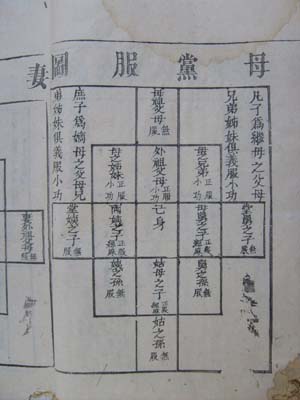 母黨服圖
凡子為繼母之父母
兄弟姊妹俱義服小功
堂舅之子無服
母兄弟正服小功
舅之子正服緦麻
舅之孫無服
母祖父母無服
外祖父母正服小功
己身
姑母之子正服緦麻
姑之孫無服
母之姊妹正服小功
兩姨之子正服緦麻
姨之孫無服
庶子為嫡母之父母兄
弟姊妹俱義服小功
堂姨之子無服
妻
妻外祖父母